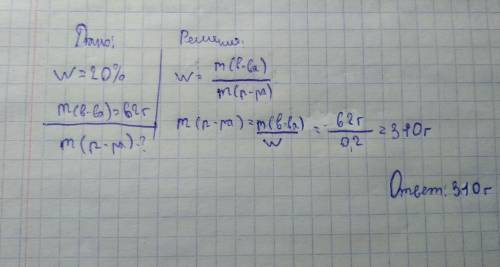 Дано:
w=20%
m(в-ва)=62г
m(р-ра)-?
Решение:
w= m(в-ва)/m(р-ра)
m(р-ра)= m(в-ва)/w = 62г/0.2 = 310г
Ответ: 310г